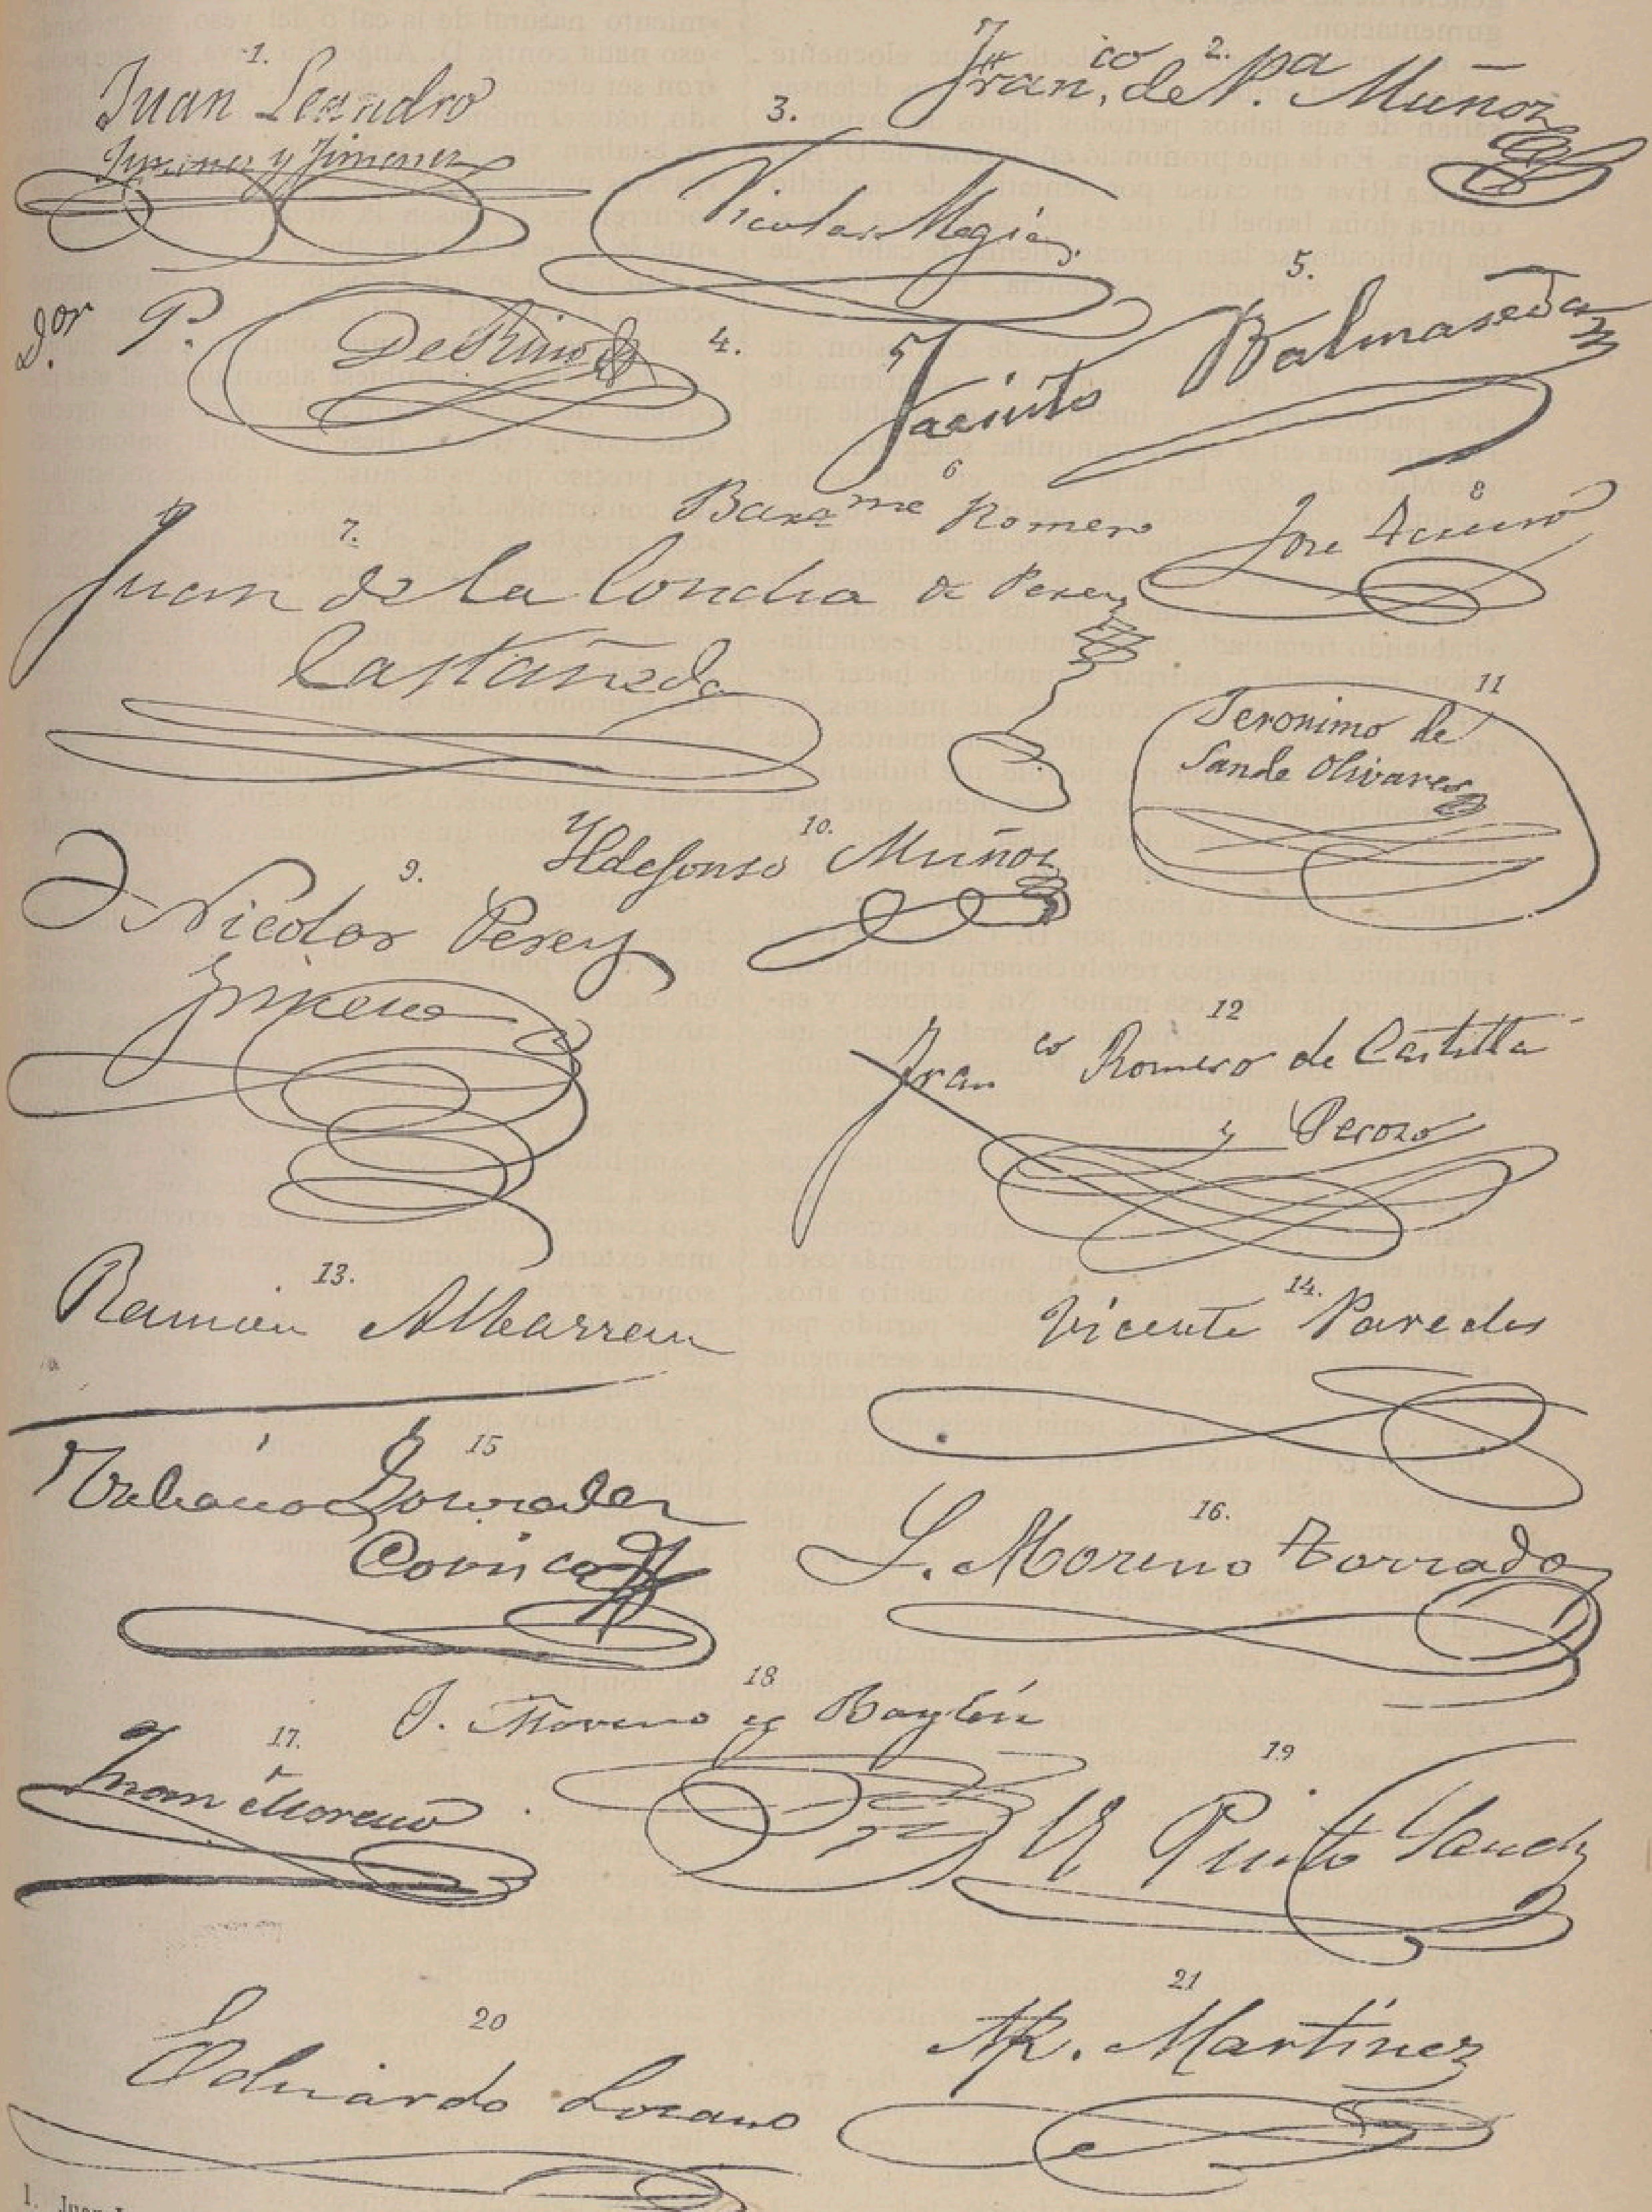 1.
Juan Leandro
Jimenez y Jimenez
2.
Fran.co de P.pa Muñoz
3.
Nicolas Megia
4.
D.or P. De Rino
5.
Jacinto Balmaseda
6
Barme Romero
de Perez
7.
Juan de la Concha
Castañeda
8
Jose
9.
Nicolas Perez
Jimenez
10.
Yldefonso Muñoz
11
Jeronimo de
Sande Olivares
12
Fran co Romero de Castilla
y Perozo
13.
Ramón Albarran
14.
Vicente Paredes
15
Urbano Gonzalez
Corisco
16.
L. Moreno Torrado
17.
Juan Moreno
18
J. Moreno y Baylén
19
Pinto Sanchz
20
Eduardo Lozano
21
M. R. Martinez
1.